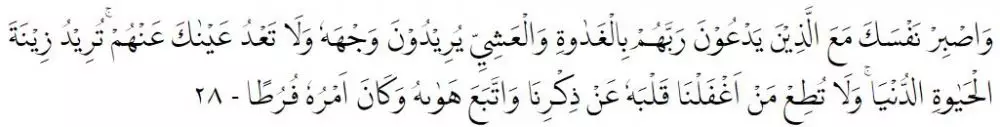 وَاصْبِرْ نَفْسَكَ مَعَ الَّذِيْنَ يَدْعُوْنَ رَبَّهُمْ بِالْغَدٰوةِ وَالْعَشِيِّ يُرِيْدُوْنَ وَجْهَهٗ وَلَا تَعْدُ عَيْنٰكَ عَنْهُمْۚ تُرِيْدُ زِيْنَةَ
الْحَيٰوةِ الدُّنْيَاۚ وَلَا تُطِعْ مَنْ اَغْفَلْنَا قَلْبَهٗ عَنْ ذِكْرِنَا وَاتَّبَعَ هَوٰىهُ وَكَانَ اَمْرُهٗ فُرُطًا - ٢٨